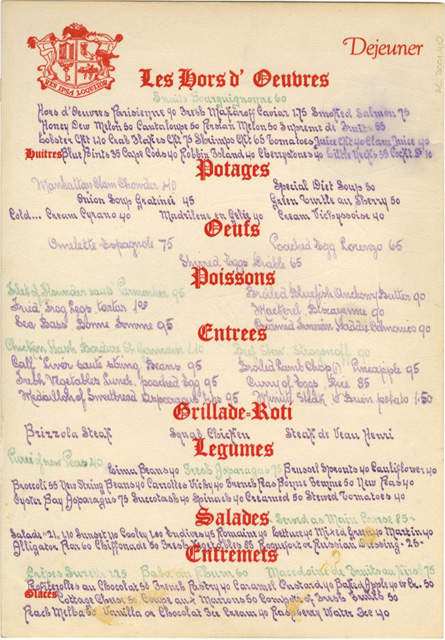 RES IPSA LOQUITUR
Dejeuner
Les Hors d' Oeuvres
Snails Bourguignonne 60
Hors d'Oeuvres Parisienne 90 Fresh Malossol Caviar 1.75 Smoked Salmon 75
Honey Dew Melon 50 Cantaloupe 50 Persian Melon 50 Supreme de Fruits 55
Lobster Ckt 1.10 Crab Flakes Ckt 75 Shrimps Ckt 65 Tomatoes Juice Ckt 40 Clam Juice 40
Huitres Blue Points 35 Cape Cods 40 Robbin Island 40 Cherrystones 40 Little Necks 35 Cockt S'ce 10
Potages
Manhattan Clam Chowder 40 Special Diet Soup 50
Onion Soup Gratinée 45 Green Turtle au Sherry 50
Cold... Cream Cyrano 40 Madrilene en Gelée 40 Cream Vichyssoise 40
Oeufs
Omelette Espagnole 75 Poached Egg Lorenzo 65
Shirred Eggs Diable 65
Poissons
Filet of Flounder sauté Parmentier 95 Broiled Bluefish Anchovy Butter 90
Fried Frog Legs tartar 1.00 Mackerel Dixayenne 90
Sea Bass Bonne Femme 95
Entrees
Chicken Hash Bordure St Germain 1.10 Beef Stew Stroganoff 90
Calf' Liver sauté String Beans 95 Broiled Lamb Chop (1) Pineapple 95
Fresh Vegetables Lunch, poached Egg 95 Curry of Eggs Rice 85
Medaillon of Sweetbread Asparagus tips 95 Minute Steak 1.50
Grillade-Roti
Brizzola Steak Squab Chicken Steak de Veau Henri
Legumes
Puree of new Peas 40
Lima Beans 40 Fresh Asparagus 75 Brussort Sprouts 40 Cauliflower 40
Brocoli 55 New String Beans 40 Carrottes Vichy 40 French Peas Bonne Femme 50 New Peas 40
Oyster Bay Asparagus 75 Succotash 40 Spinach 40 Creamed 50 Stewed Tomatoes 40
Salades - Served as Main Course 85-
Salade 21, 40 Sunset 40 Cooley 60 Endives 45 Romaine 40 Lettuce 40 Mixed Green 40 Martin 40
Alligator Pear 60 Chiffonade 50 Fresh Roquefort or Russian Dressing - 25 -
Entremets
Crêpes Suzette 1.25 Baba au Rhum 60 Macedoine de Fruits au Vin 75
Profiterolle au Chocolat 50 French Pastry 40 Caramel Custard 40 Baked Apple 40
Glaces Cottage Cheese 50 Coupe aux Marrons 50 Compote of Fresh Fruits 50
Peach Melba 60 Vanilla or Chocolat Ice Cream 40 Raspberry Water Ice 40